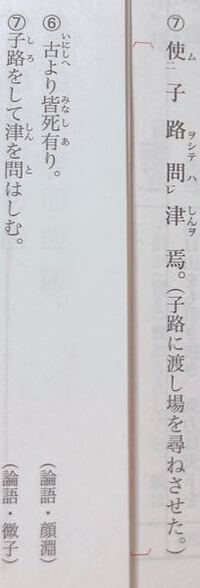 ム ヲシテ ハ しんヲ
⑦ 使二子路問レ津焉。(子路に渡し場を尋ねさせた。)
いにしへ みな し あ
⑥ 古より皆死有り。 (論語・顔淵)
しろ しん と
⑦ 子路をして津を問はしむ。 (論語・微子)